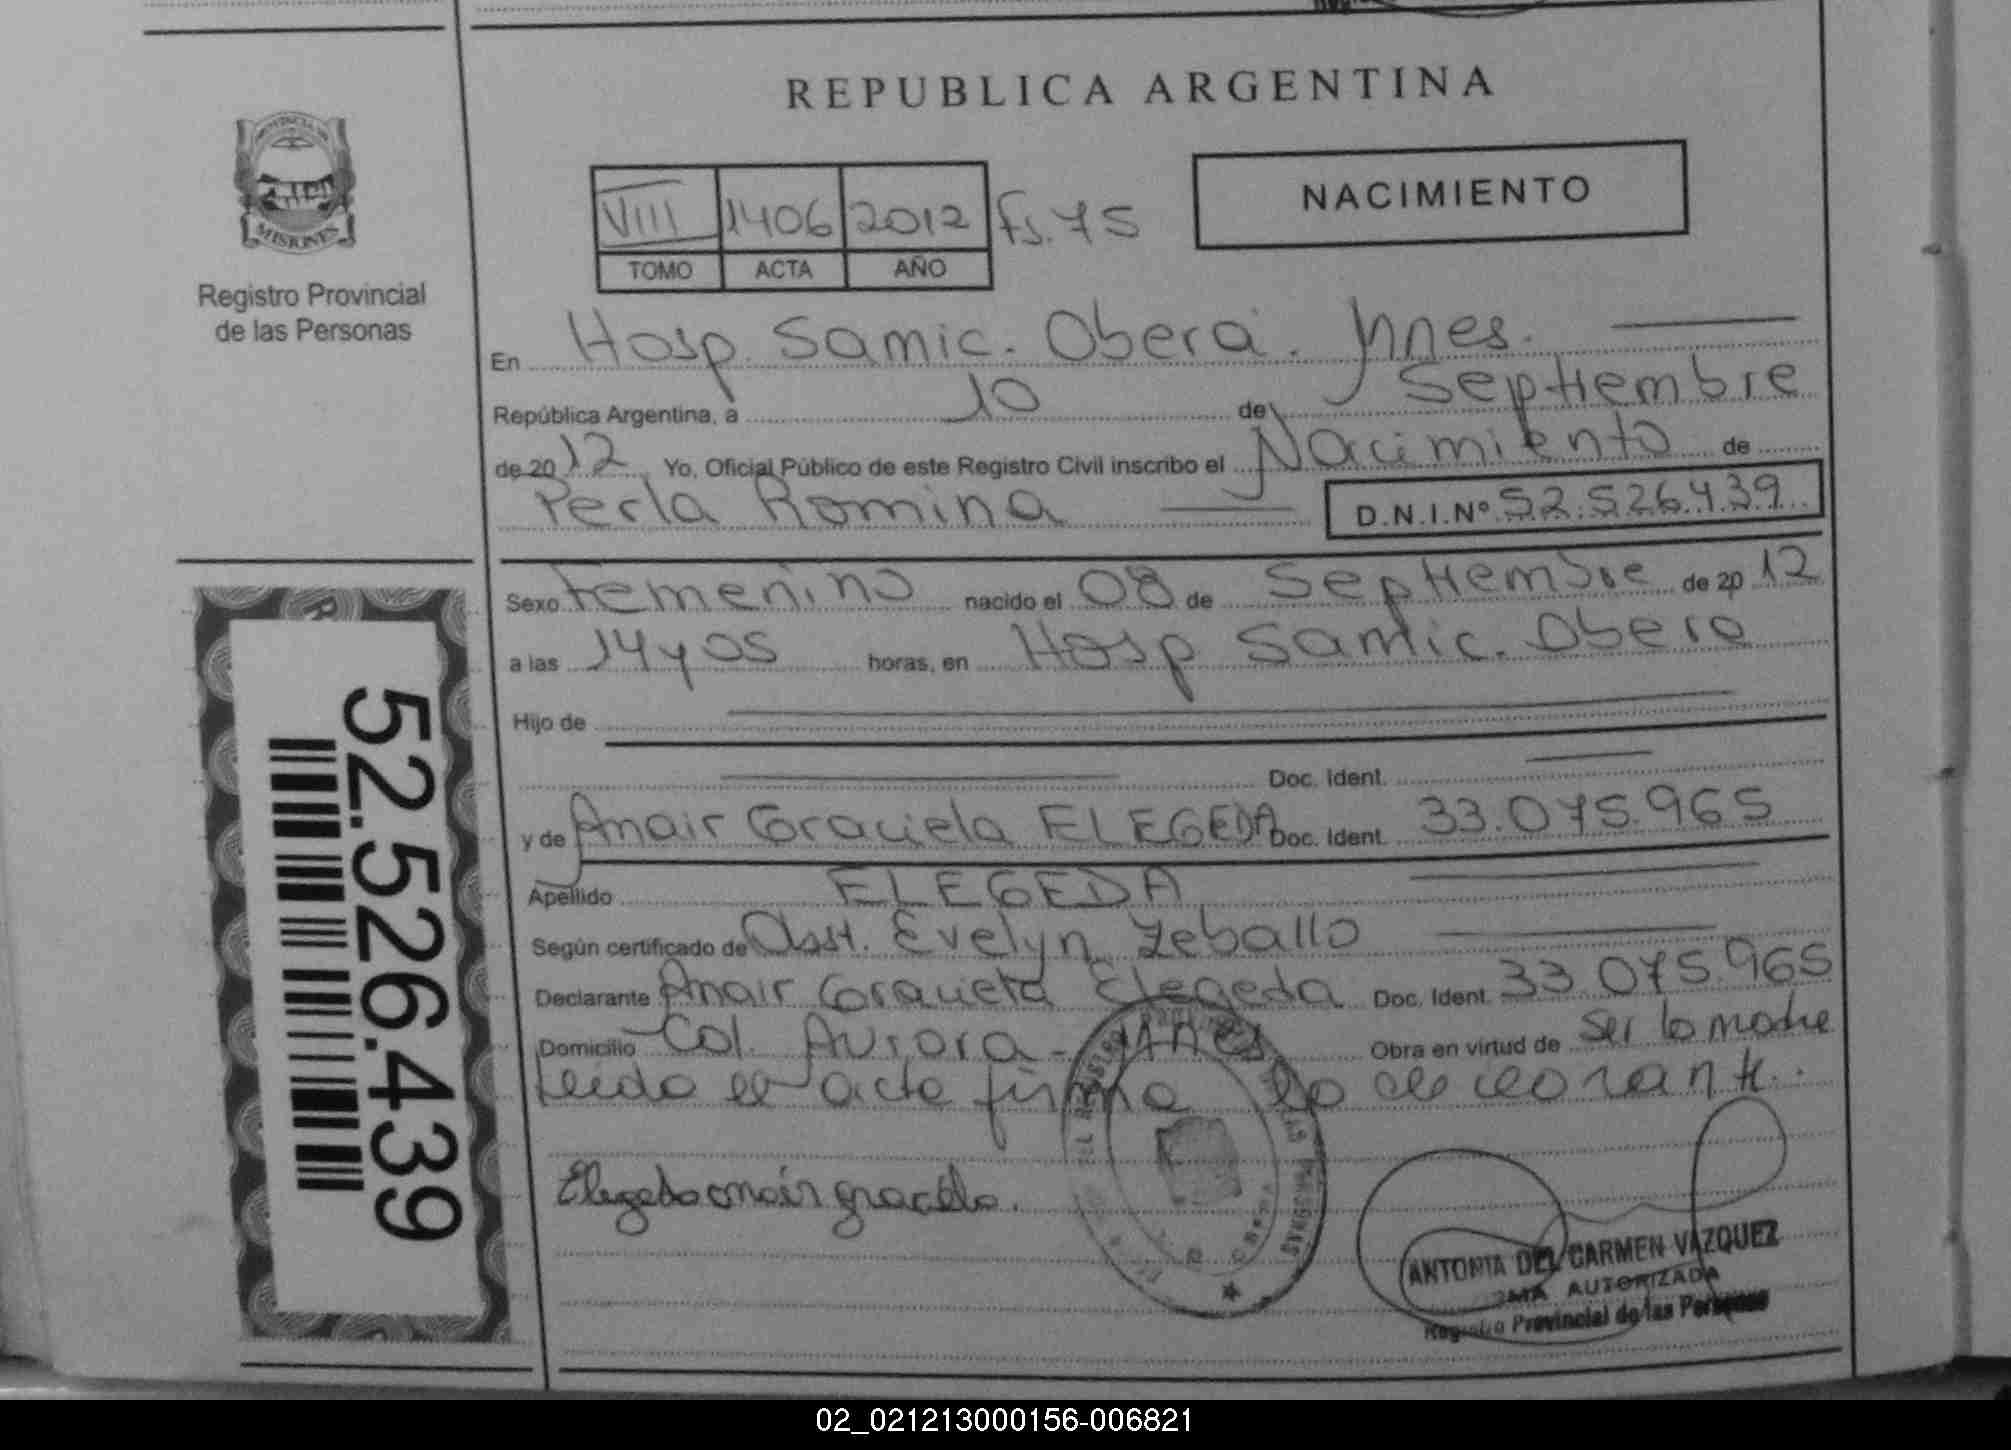 REPUBLICA ARGENTINA
PROVINCIA DE
MISIONES
Registro Provincial
de las Personas
VIII 1406 2012 Fs. 75
TOMO ACTA AÑO
NACIMIENTO
En Hosp. Samic. Oberá. Mnes.
República Argentina, a 10 de Septiembre
de 2012 Yo, Oficial Público de este Registro Civil inscribo el Nacimiento de
Perla Romina D.N.I.Nº 52.526.439
Sexo Femenino nacido el 08 de Septiembre de 2012
a las 14 y 05 horas, en Hosp Samic. Obera
Hijo de
Doc. Ident.
y de Anair Graciela ELEGEDA Doc. Ident. 33.075.965
Apellido ELEGEDA
Según certificado de Obst. Evelyn Zeballo
Declarante Anair Graciela Elegeda Doc. Ident. 33.075.965
Domicilio Col. Aurora - Mnes Obra en virtud de ser la madre
Leida el acta firma la declarante.
Elegeda anair graciela.
ANTONIA DEL CARMEN VAZQUEZ
FIRMA AUTORIZADA
Registro Provincial de las Personas
52.526.439
02_021213000156-006821